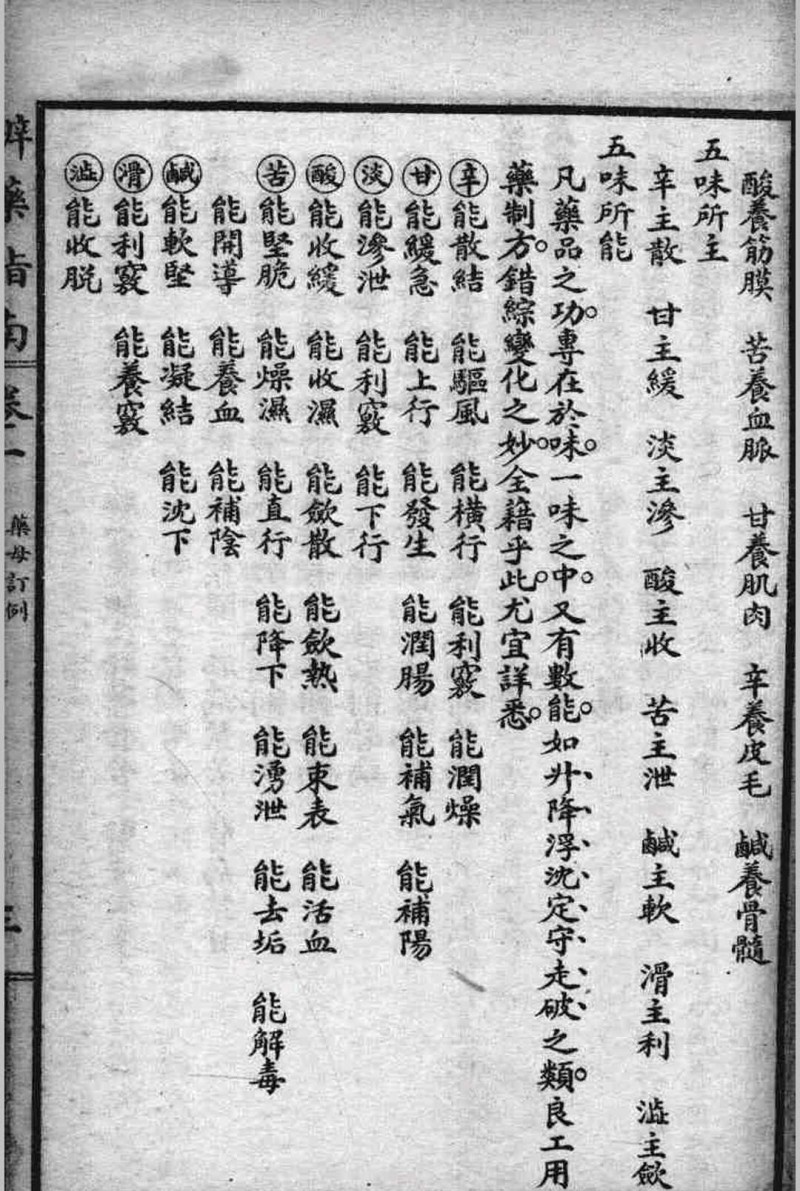 酸養筋膜 苦養血脈 甘養肌肉 辛養皮毛 鹹養骨髓
五味所主
辛主散 甘主緩 淡主滲 酸主收 苦主泄 鹹主軟 滑主利 澁主歛
五味所能
凡藥品之功。專在於味。一味之中。又有數能。如升、降、浮、沈、定、守、走、破、之類。良工用
藥制方。錯綜變化之妙。全藉乎此。尤宜詳悉。
辛能散結 能驅風 能橫行 能利竅 能潤燥
甘能緩急 能上行 能發生 能潤腸 能補氣 能補陽
淡能滲泄 能利竅 能下行
酸能收緩 能收濕 能歛散 能歛熱 能束表 能活血
苦能堅脆 能燥濕 能直行 能降下 能湧泄 能去垢 能解毒
能開導 能養血 能補陰
鹹能軟堅 能凝結 能沈下
滑能利竅 能養竅
澁能收脫
藥指南 卷一 藥母訂例 三